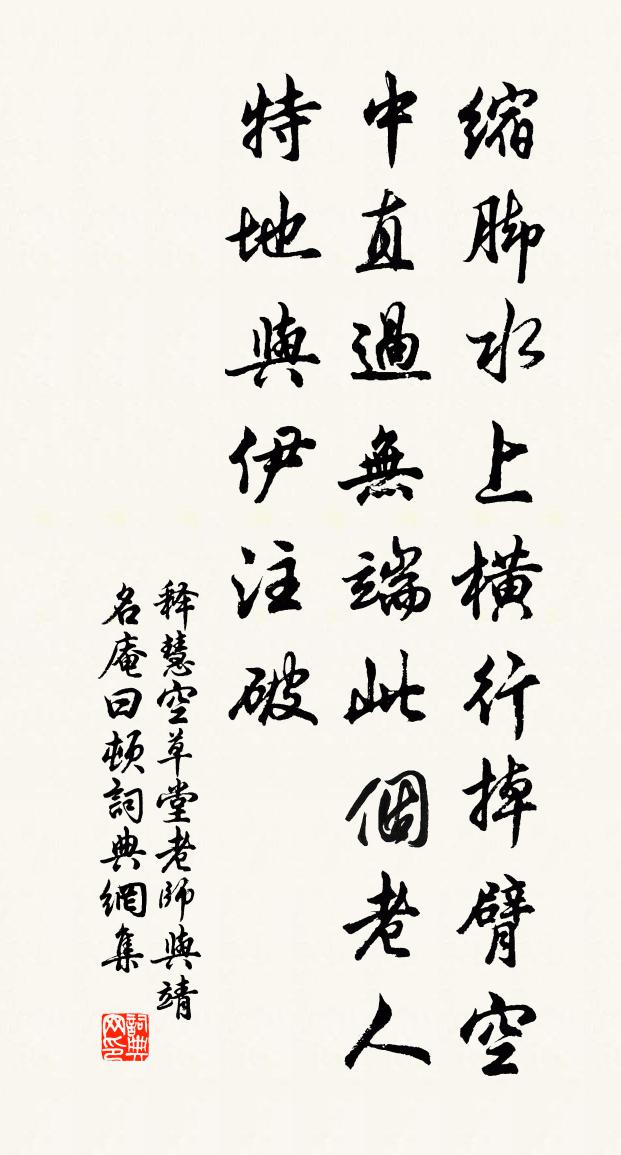 縮脚水上橫行掉臂空
中直過無端此個老人
特地與伊注破
释慧空草堂老師與靖
名庵曰頓詞典網集
詞典網印